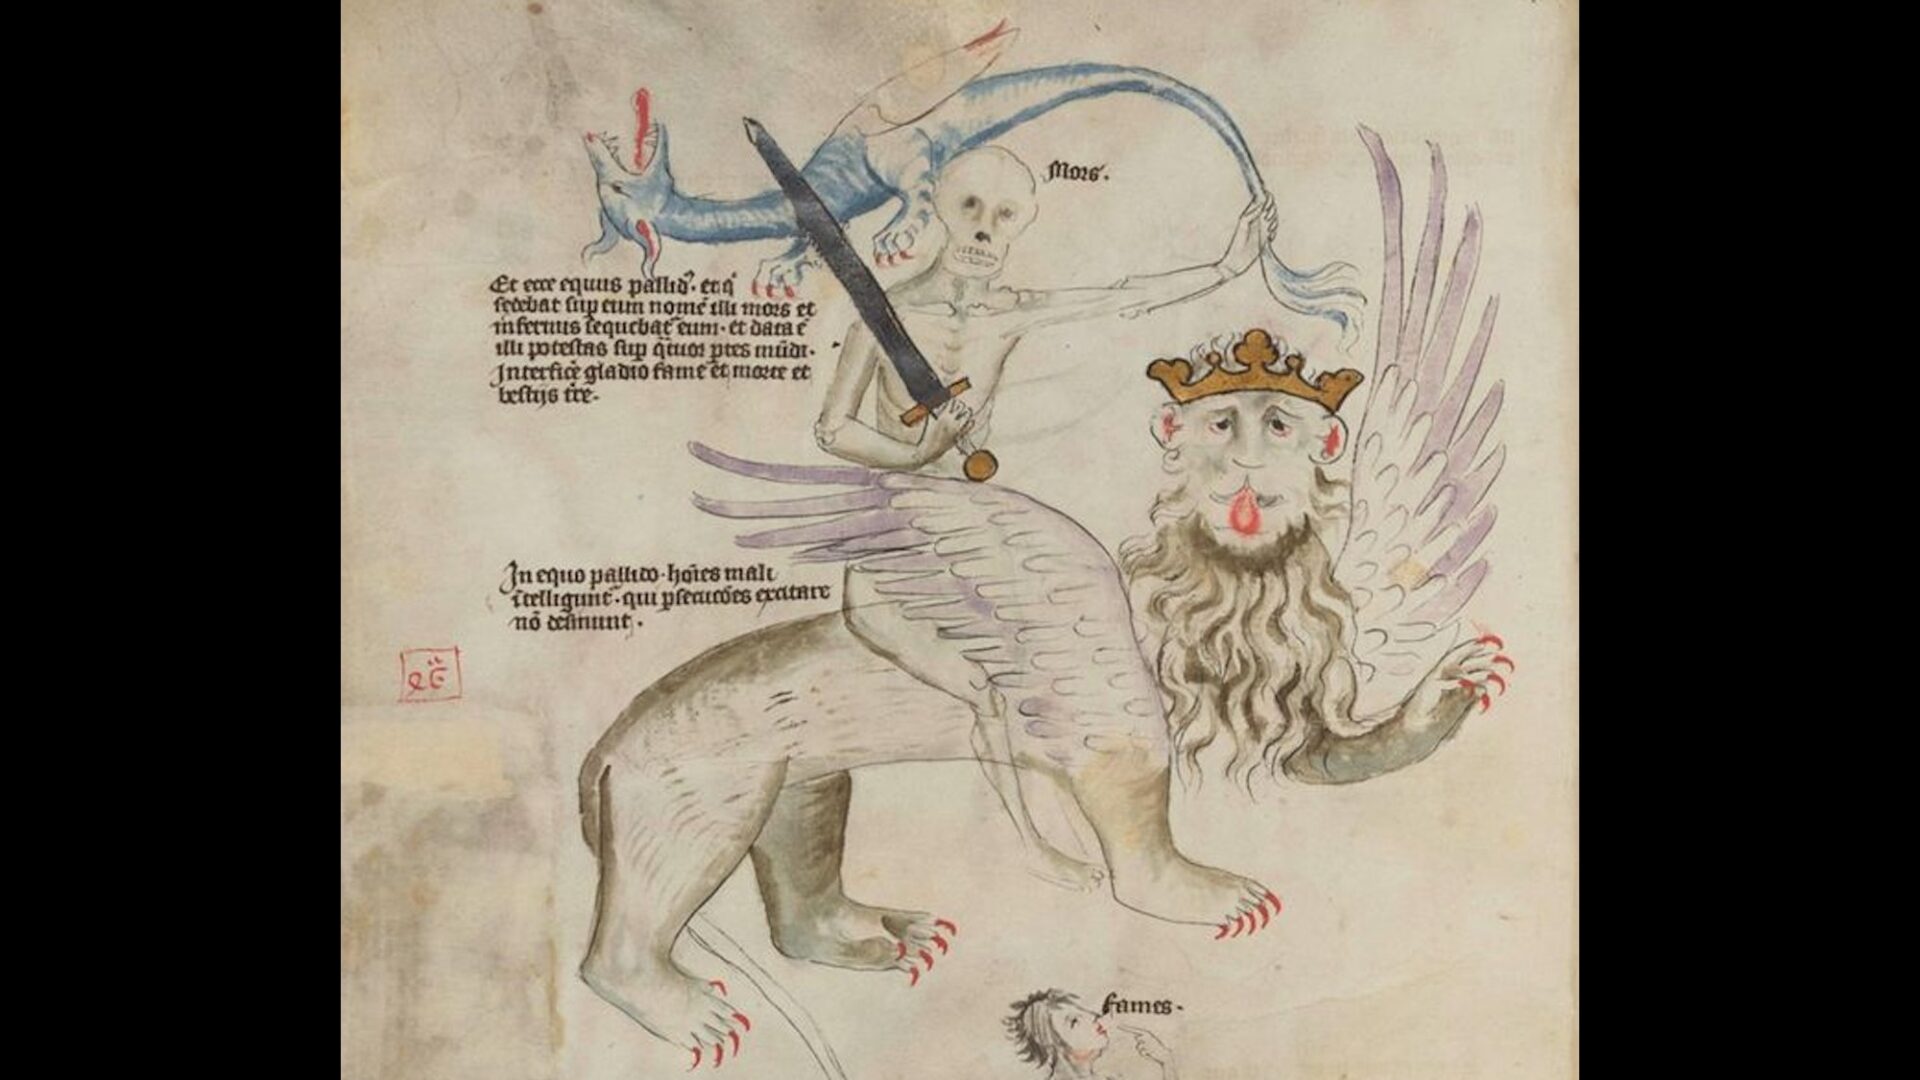 Mors.
Et ecce equus pallidꝰ. et q̇
sedebat sup eum nomē illi mors et
infernus sequebat̉ eum. et data ē
illi potestas sup q̄tuor ptes mūdi.
Interfic̄e gladio fame et morte et
bestijs tr̄e.
In equo pallido. hoīes mali
ītelligunt̉. qui psecucōes excitare
nō desinunt.
fames.